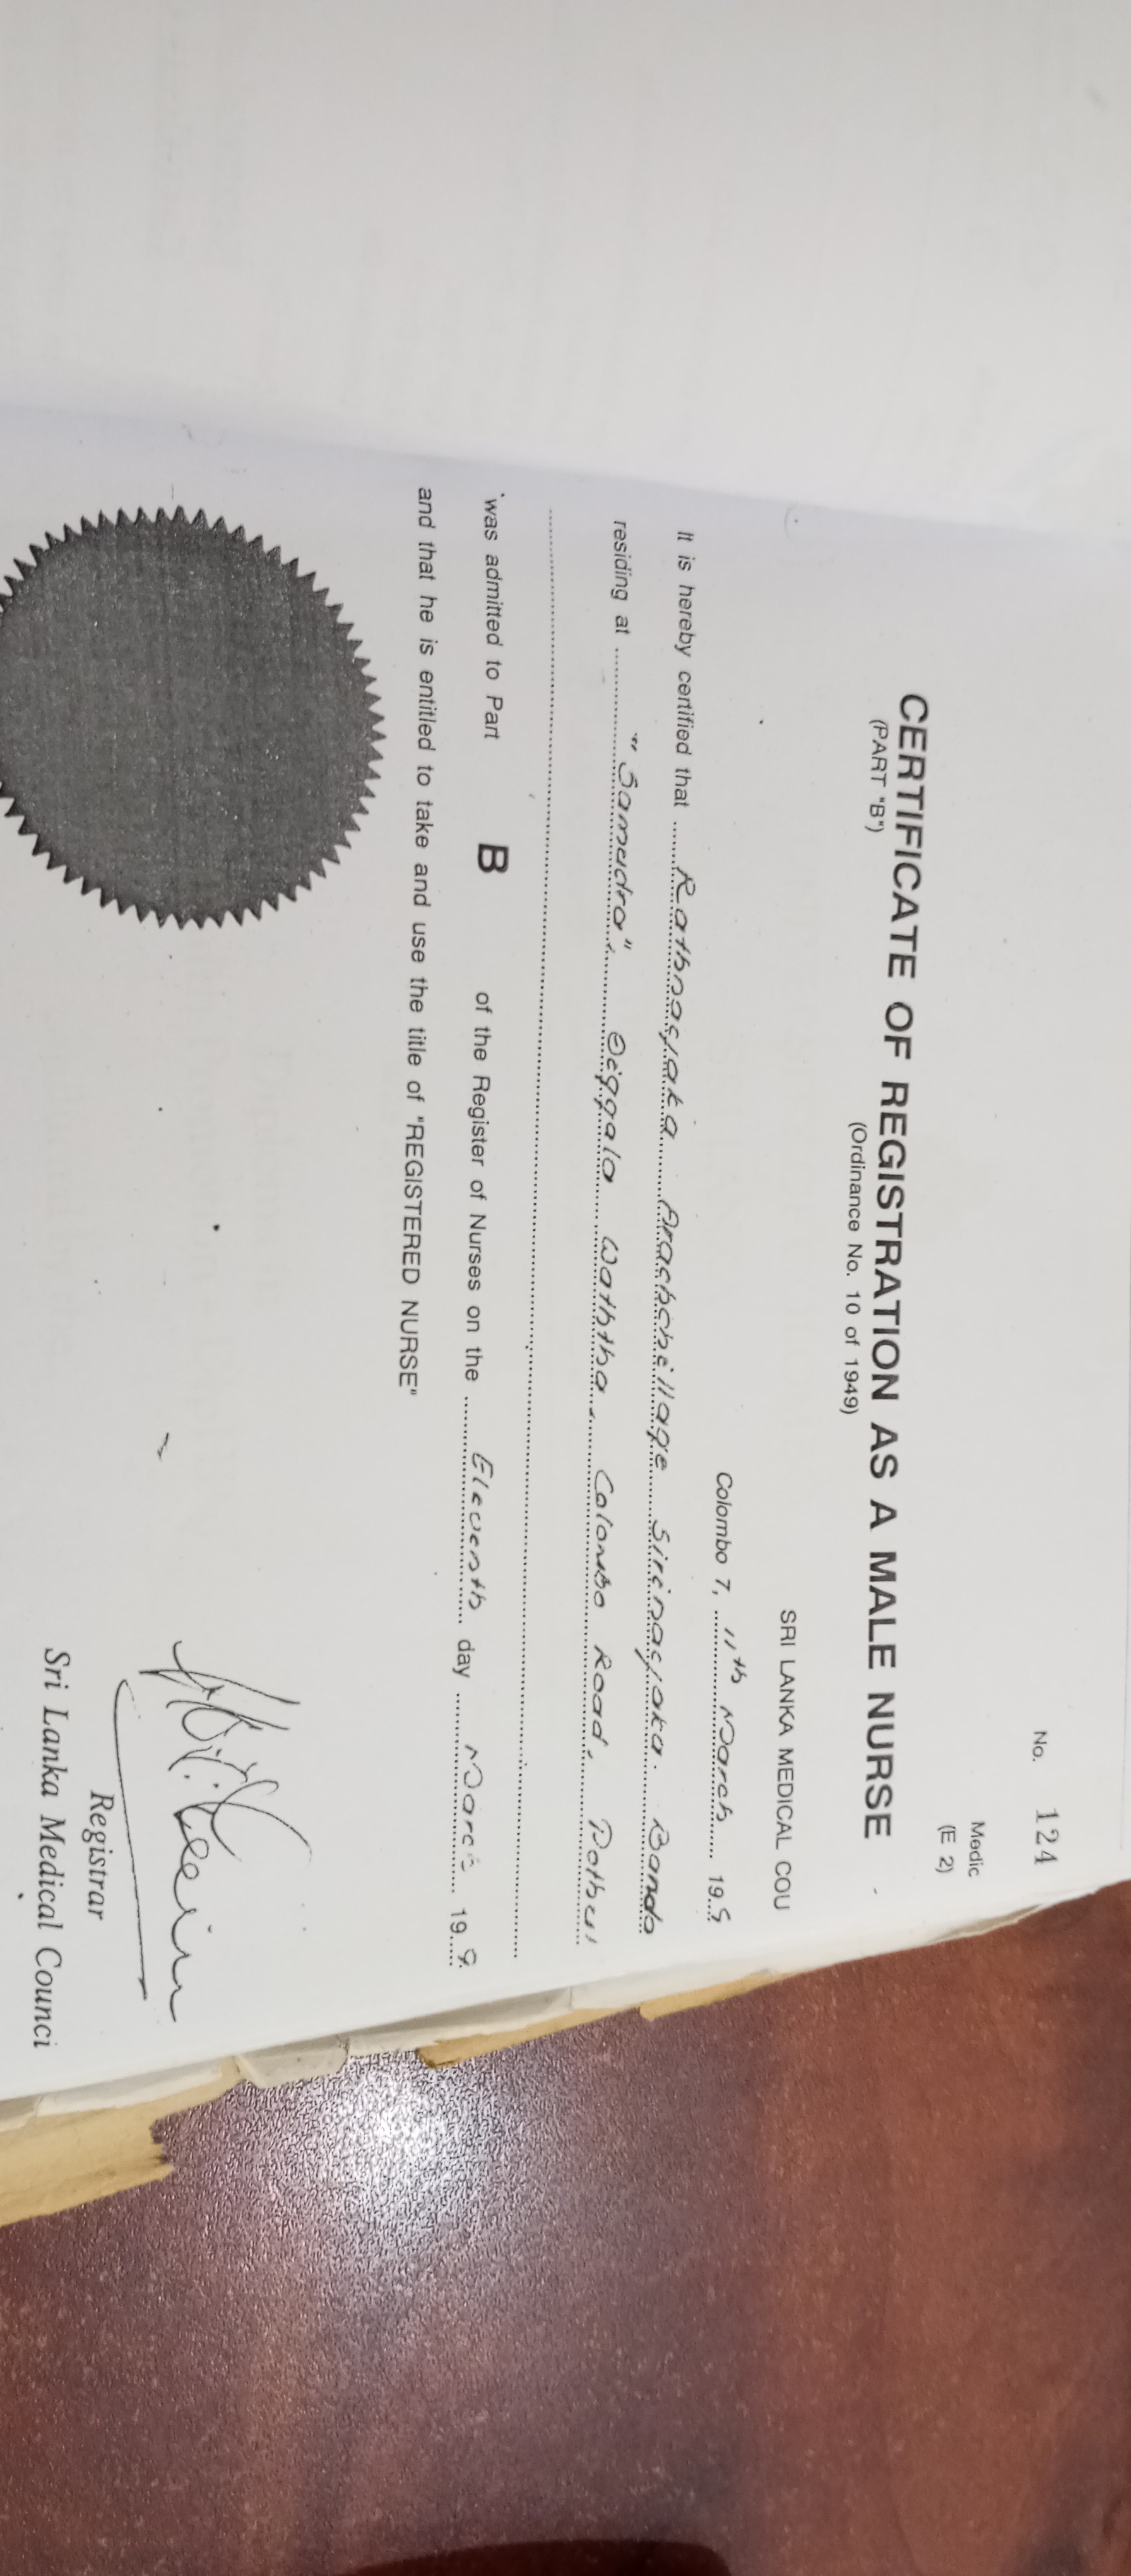 No. 124
Medic
(E 2)
CERTIFICATE OF REGISTRATION AS A MALE NURSE
(PART "B")
(Ordinance No. 10 of 1949)
SRI LANKA MEDICAL COU
Colombo 7, 11th March 19
It is hereby certified that Rathnayaka Arachchillage Sirinayaka Banda
residing at "Samudra", Deggala Waththa, Colombo Road,
was admitted to Part B of the Register of Nurses on the Eleventh day March 19 9
and that he is entitled to take and use the title of "REGISTERED NURSE"
Registrar
Sri Lanka Medical Counci